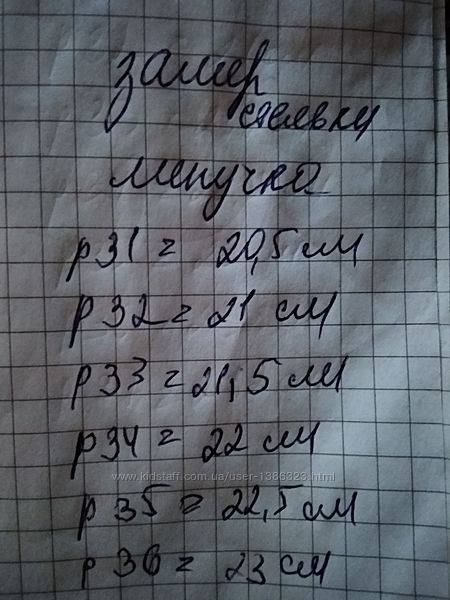 замер
стельки
липучка
р31 = 20,5 см
р32 = 21 см
р33 = 21,5 см
р34 = 22 см
www.kidstaff.com.ua/user-1386323.html
р35 = 22,5 см
р36 = 23 см